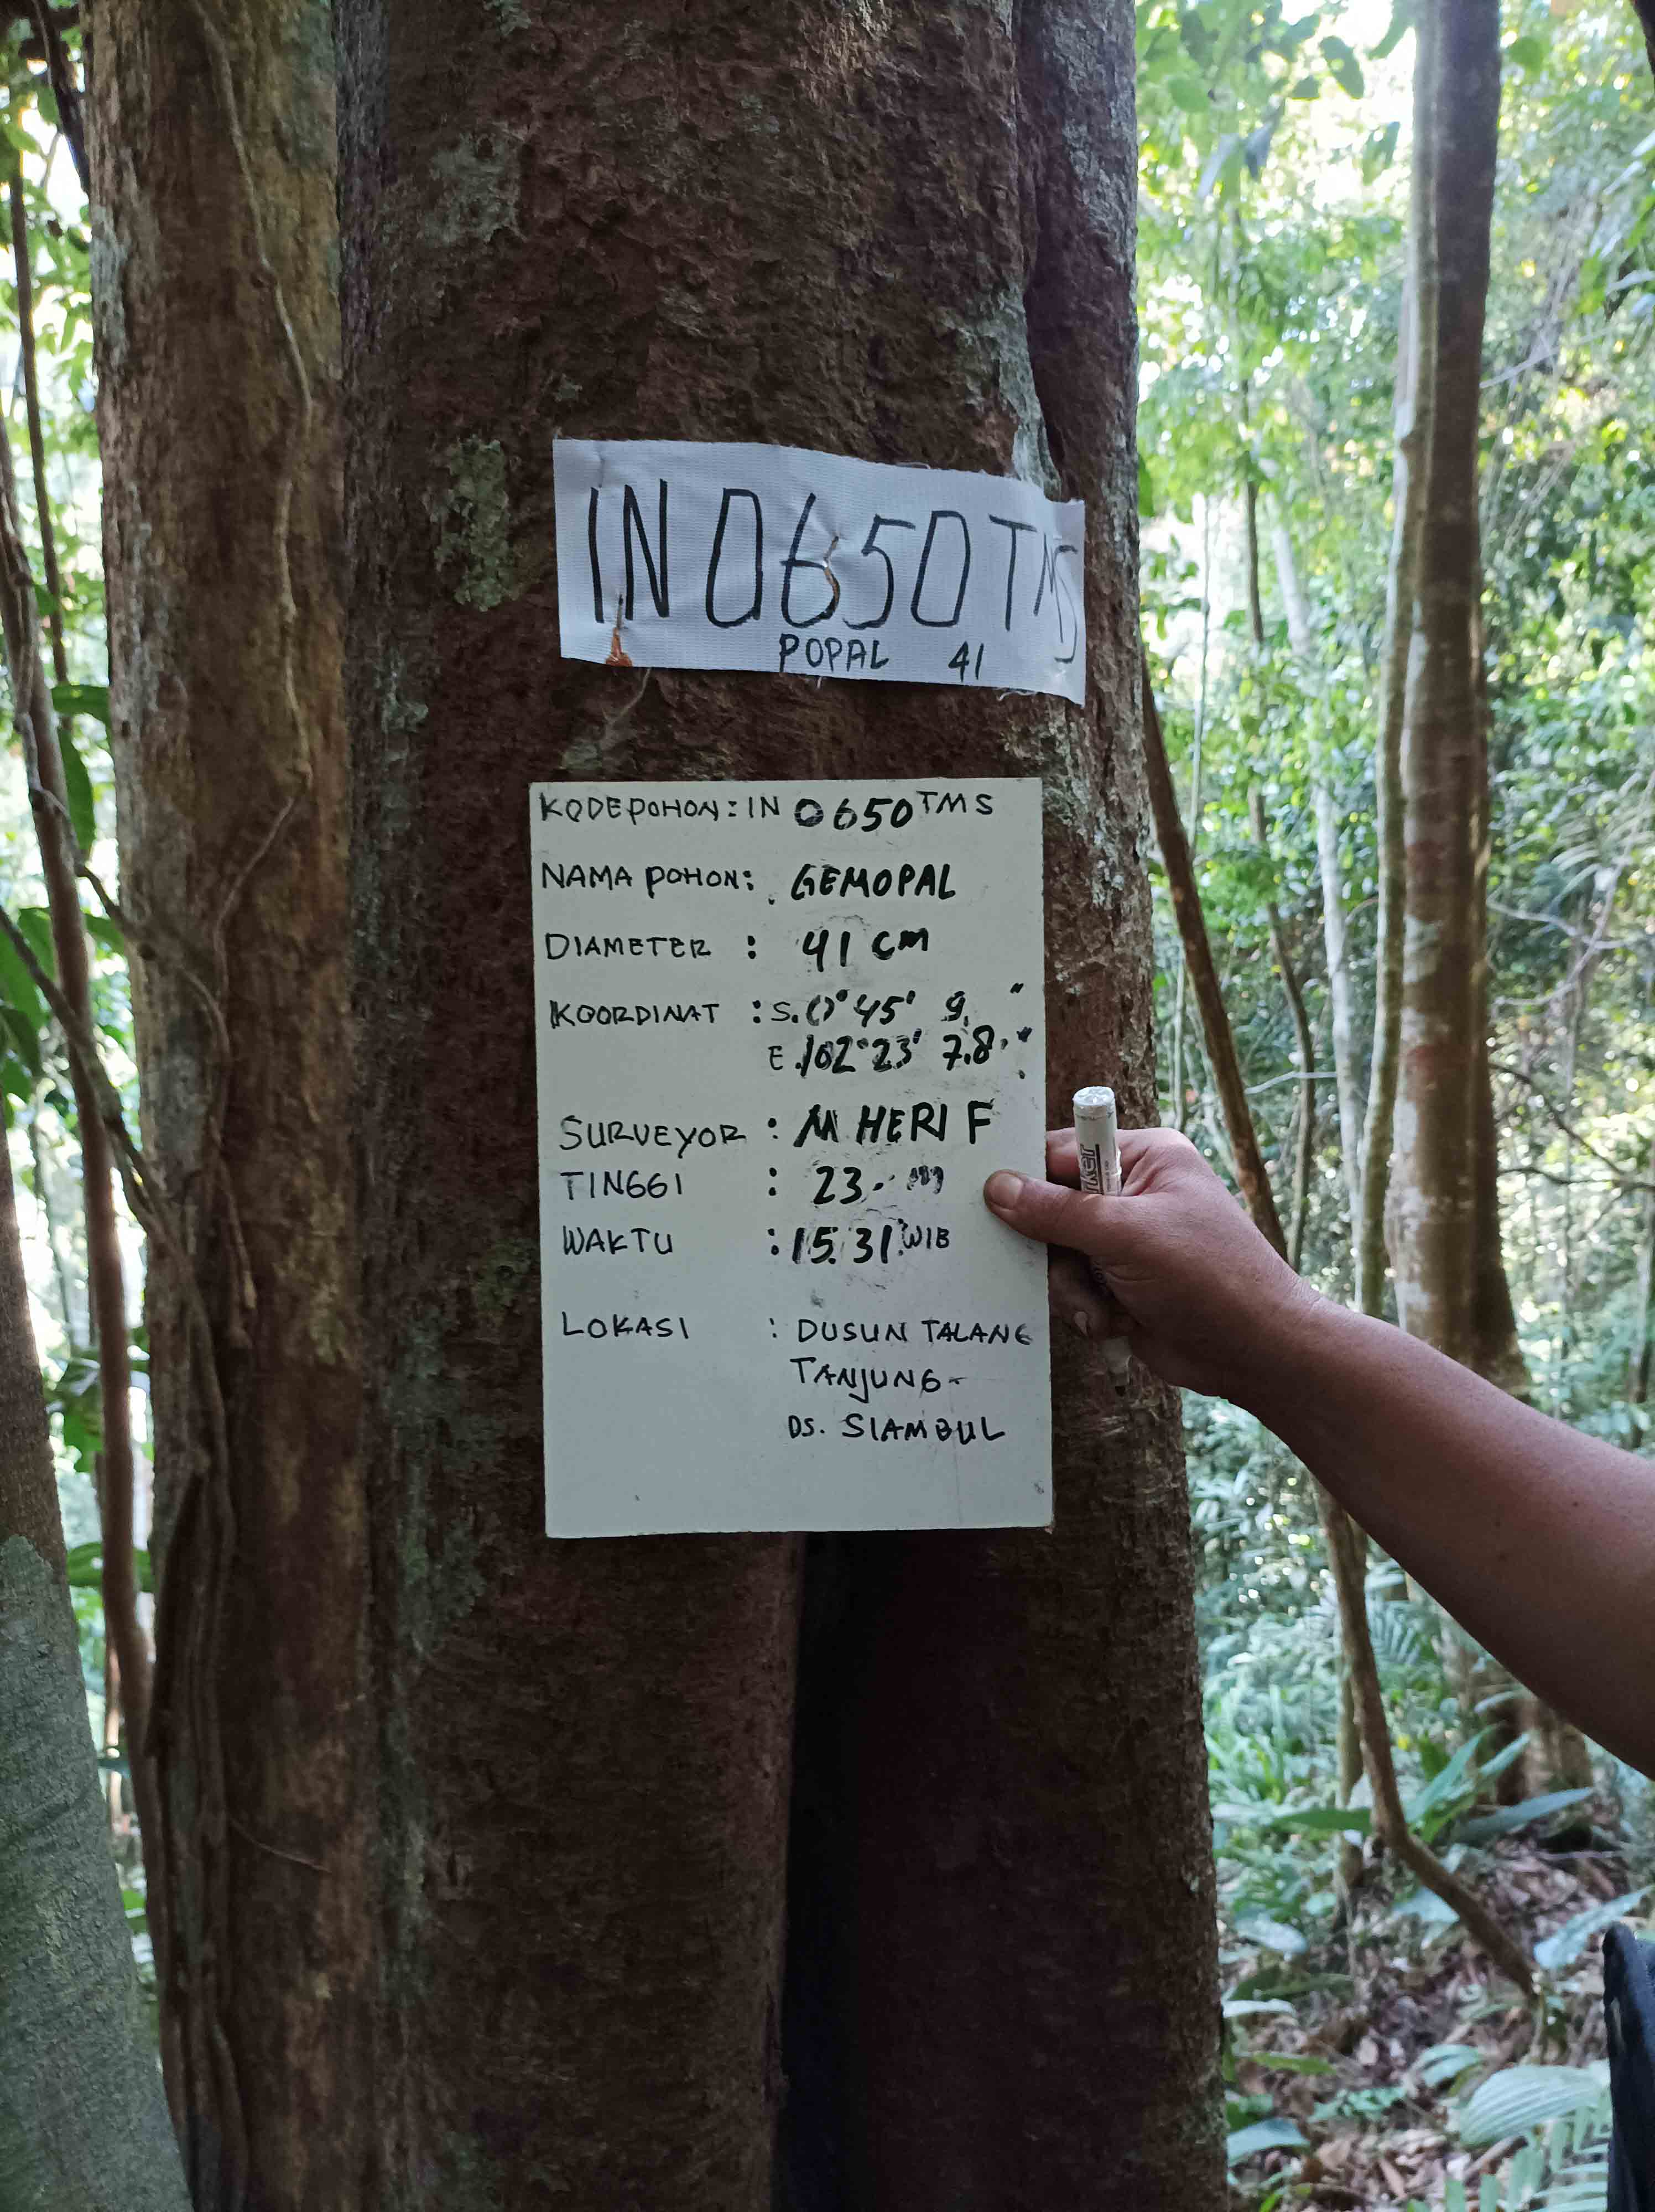 IN0650TMS
POPAL 41
KODEPOHON: IN 0650TMS
NAMA POHON: GEMOPAL
DIAMETER : 41 CM
KOORDINAT : S.0° 45' 9."
E.102°23' 7.8."
SURVEYOR : M HERI F
TINGGI : 23. m
WAKTU : 15.31 WIB
LOKASI : DUSUN TALANG
TANJUNG-
DS. SIAMBUL